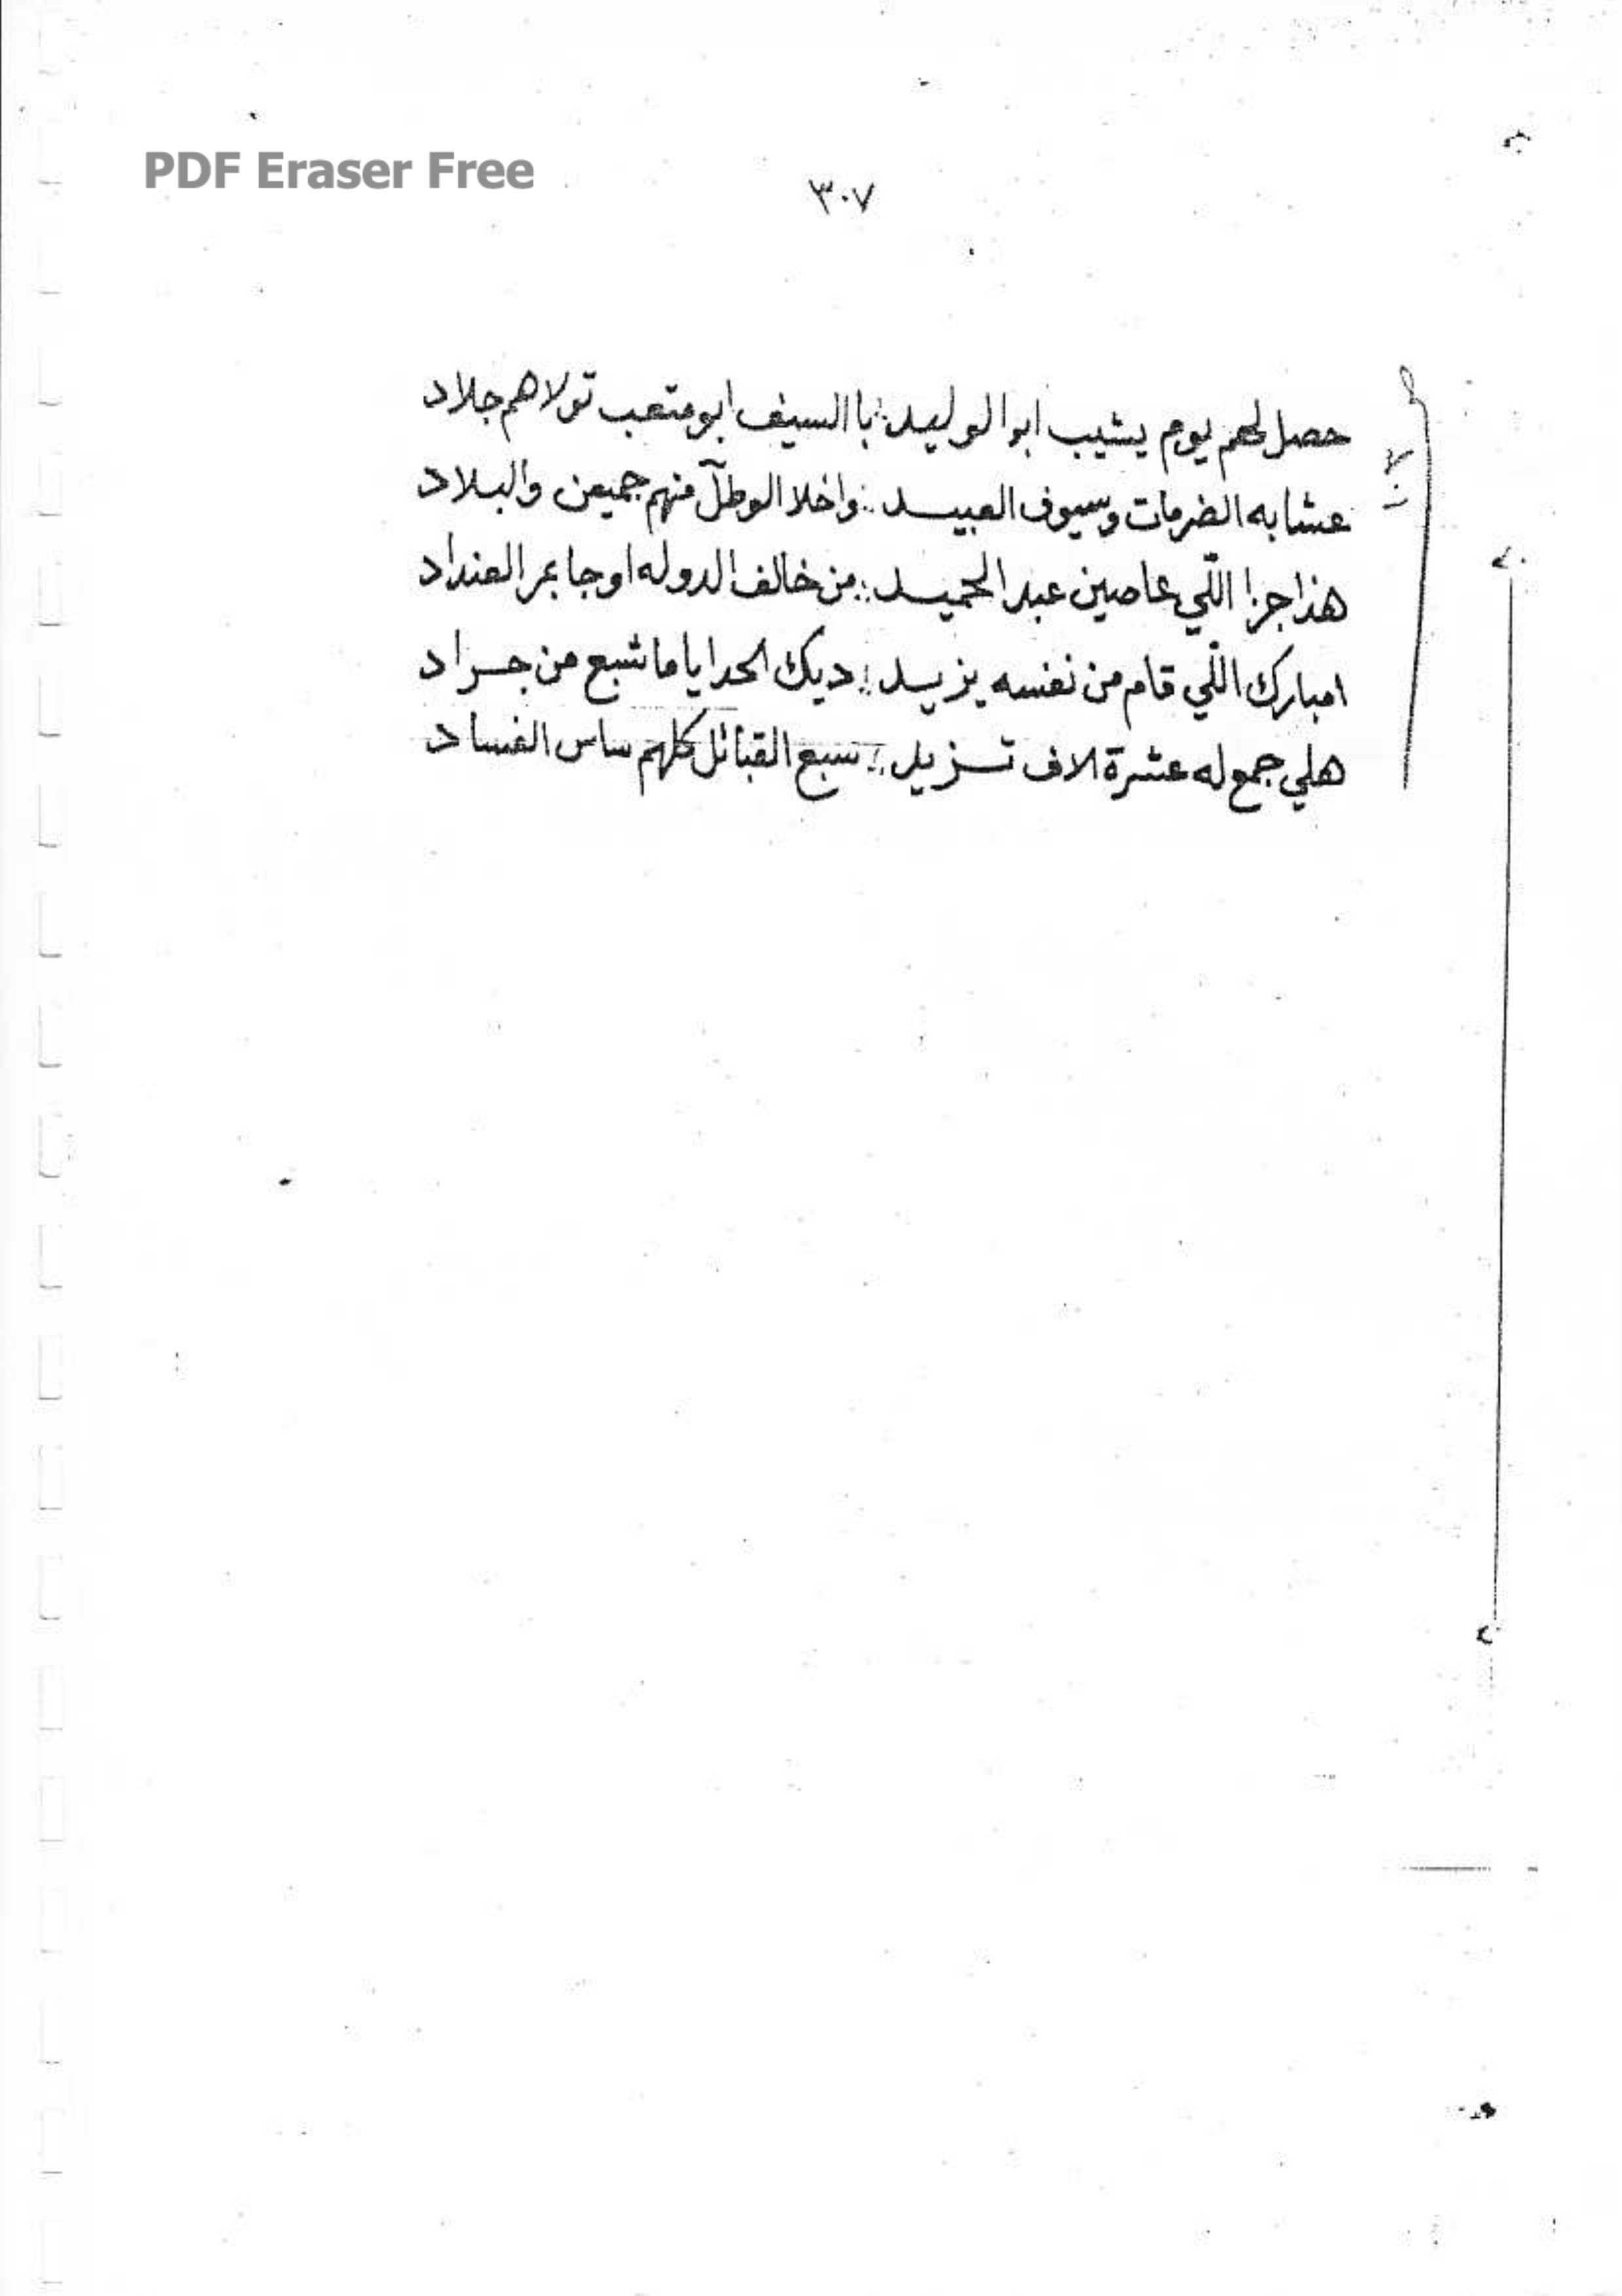 PDF Eraser Free
٣٠٧
حصل لهم يوم يشيب ابوالوليد :: باالسيف ابومتعب تولاهم جلاد
عشابه الضرمات وسيوف العبيـد :: واخلا الوطن منهم جميعن والبلاد
هذا جزا اللّي عاصين عبدالحميـد :: من خالف الدوله اوجا بمر العنداد
امبارك اللّي قام من نفسه يزيـد :: ديك الحدايا ما شبع من جـراد
هلي جمع له عشرة الاف تـزيد :: سبع القبائل كلهم ساس الفساد